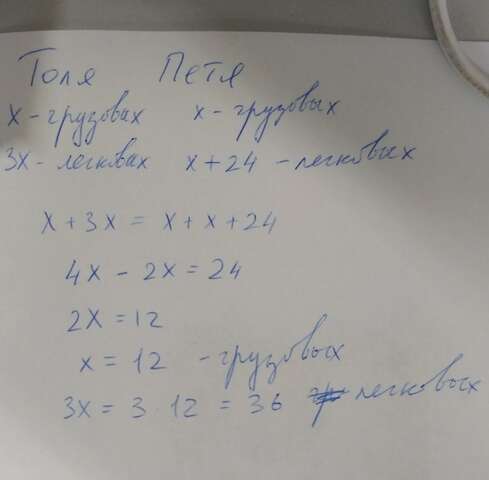 Толя Петя
х - грузовах х - грузовых
3х - легковах х + 24 - легковых
х + 3х = х + х + 24
4х - 2х = 24
2х = 12
х = 12 - грузовых
3х = 3 · 12 = 36 легковых